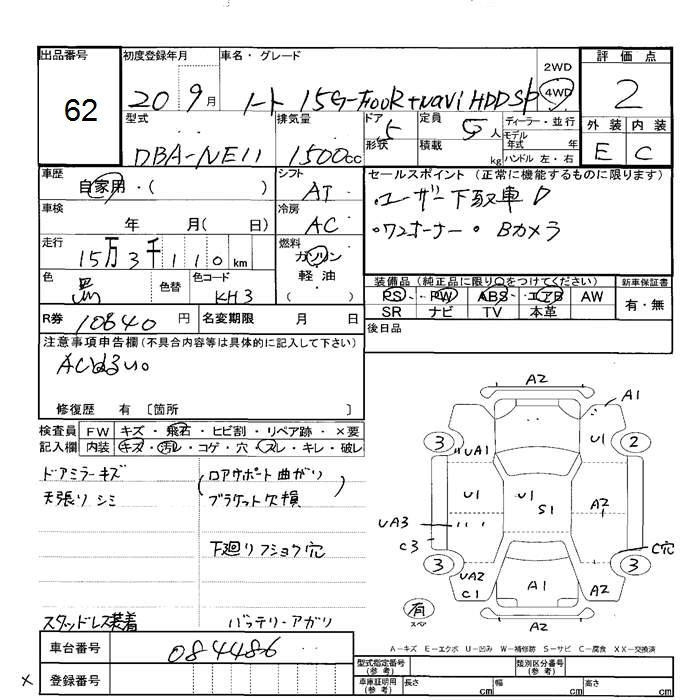 出品番号 初度登録年月 車名・グレード 2WD 評価点
62 20 9月 ノート 15G-FOUR+navi HDD SP 4WD 2
型式 排気量 ドア 5 定員 5人 ディーラー・並行 外装 内装
DBA-NE11 1500cc 形状 積載 kg モデル年式 年 E C
ハンドル 左・右
車歴 シフト セールスポイント (正常に機能するものに限ります)
自家用・( ) AT ・ユーザー下取車
車検 冷房 ・ワンオーナー ・Bカメラ
年 月( 日) AC
走行 燃料
15万3千110km ガソリン
色 色替 色コード 軽油 装備品 (純正品に限り○をつけてください) 新車保証書
黒 KH3 ( ) PS PW ABS エアB AW 有・無
SR ナビ TV 本革
R券 10640円 名変期限 月 日 後日品
注意事項申告欄(不具合内容等は具体的に記入して下さい)
ACぬるい。
修復歴 有 〔箇所 〕
検査員 FW キズ・飛石・ヒビ割・リペア跡・×要
記入欄 内装 キズ・汚レ・コゲ・穴・スレ・キレ・破レ
ドアミラーキズ (ロアサポート曲がり
天張りシミ ブラケット欠損)
下廻りフショク穴
スタッドレス装着 バッテリーアガリ
A2
A1
3 UA1 U1 2
U1 U1 S1 A2
UA3
C3 C穴
3 UA2 C1 A1 A2 3
有 スペ A2
A-キズ E-エクボ U-凹み W-補修跡 S-サビ C-腐食 XX-交換済
車台番号 084486
× 登録番号
型式指定番号(参考) 類別区分番号(参考)
車庫証明用(参考) 長さ cm 幅 cm 高さ cm